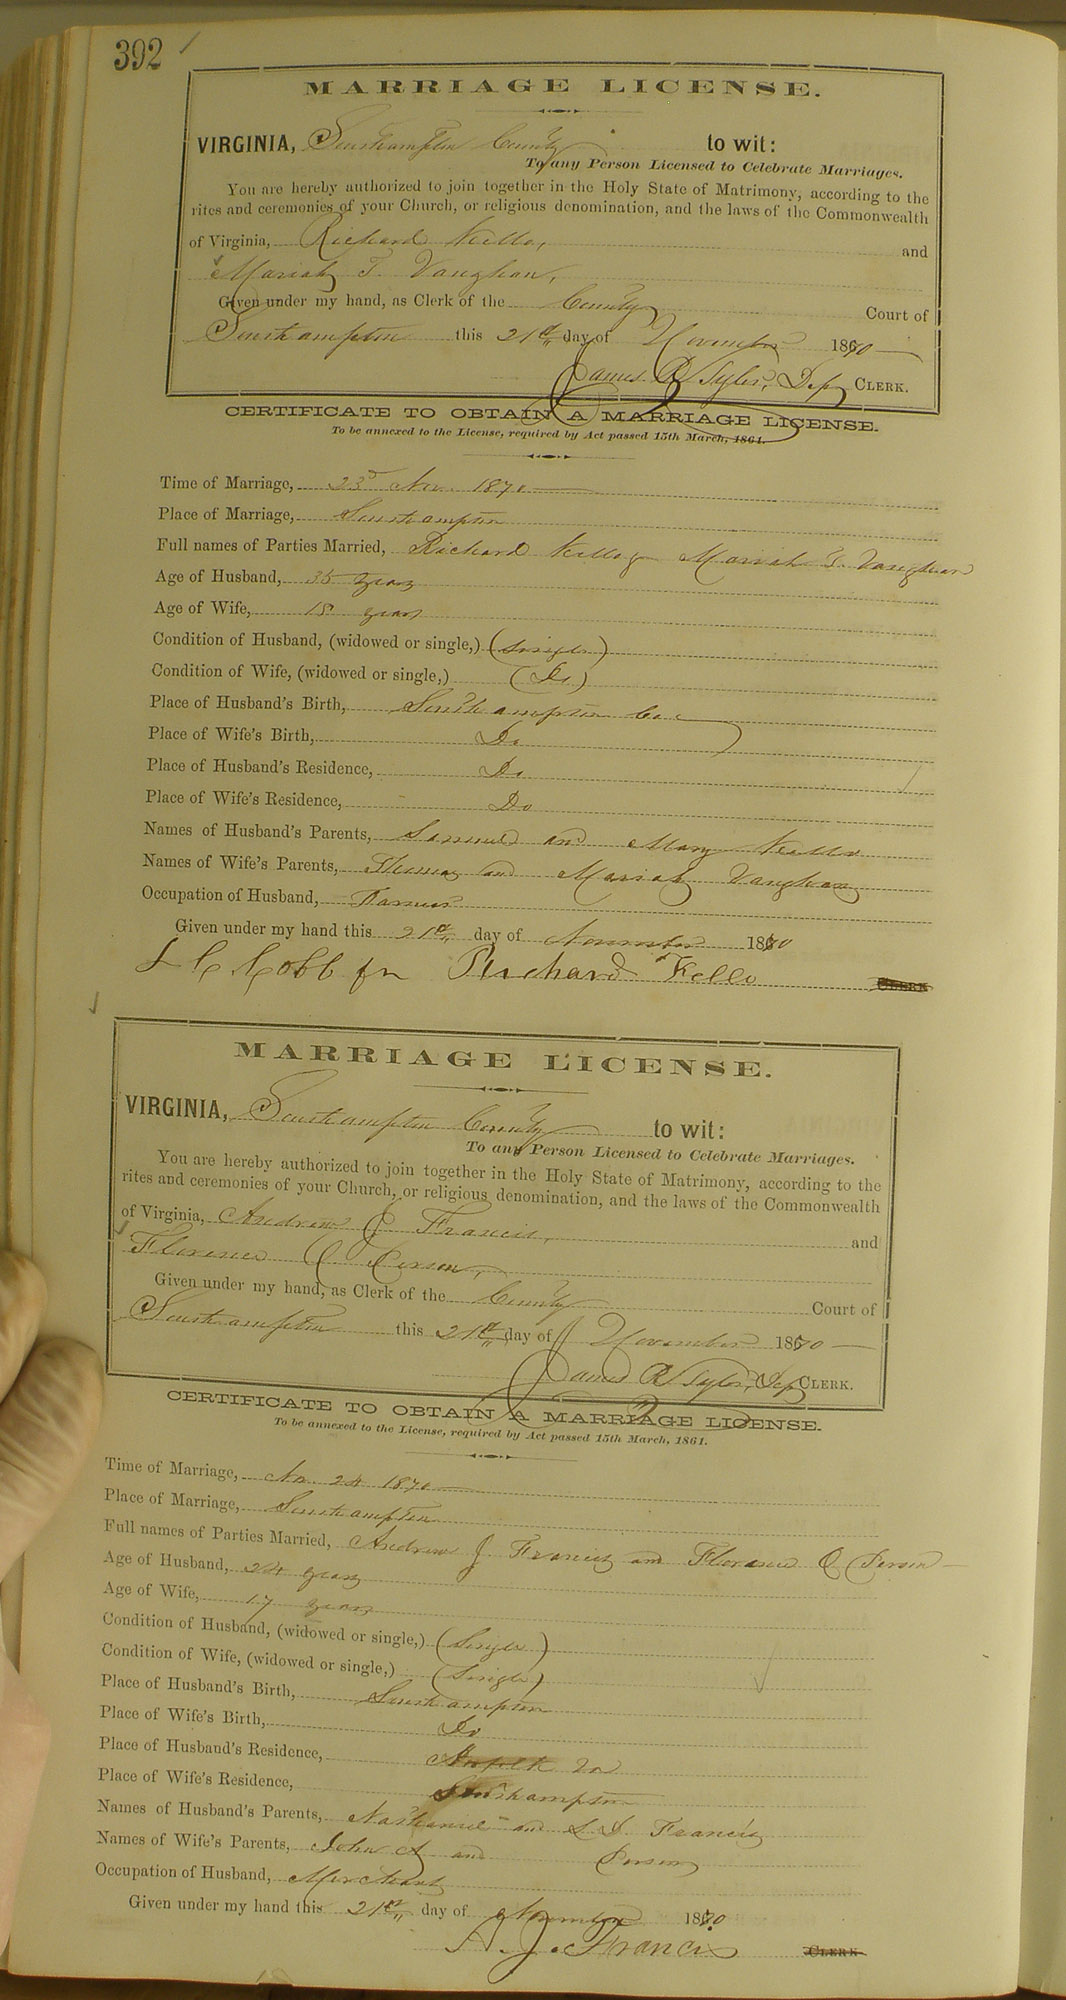 392
MARRIAGE LICENSE.
VIRGINIA, Southampton County to wit:
To any Person Licensed to Celebrate Marriages.
You are hereby authorized to join together in the Holy State of Matrimony, according to the
rites and ceremonies of your Church, or religious denomination, and the laws of the Commonwealth
of Virginia, Richard Kello, and
Mariah T. Vaughan,
Given under my hand, as Clerk of the County Court of
Southampton this 21st day of November 1870
James R Tyler, Dep CLERK.
CERTIFICATE TO OBTAIN A MARRIAGE LICENSE.
To be annexed to the License, required by Act passed 15th March, 1861.
Time of Marriage, 23d Nov. 1870
Place of Marriage, Southampton
Full names of Parties Married, Richard Kello & Mariah T. Vaughan
Age of Husband, 35 years
Age of Wife, 18 years
Condition of Husband, (widowed or single,) (Single)
Condition of Wife, (widowed or single,) (Do)
Place of Husband's Birth, Southampton Co
Place of Wife's Birth, Do
Place of Husband's Residence, Do
Place of Wife's Residence, Do
Names of Husband's Parents, Samuel and Mary Kello
Names of Wife's Parents, Thomas and Mariah Vaughan
Occupation of Husband, Farmer
Given under my hand this 21st day of November 1870
L C Cobb for Richard Kello CLERK
MARRIAGE LICENSE.
VIRGINIA, Southampton County to wit:
To any Person Licensed to Celebrate Marriages.
You are hereby authorized to join together in the Holy State of Matrimony, according to the
rites and ceremonies of your Church, or religious denomination, and the laws of the Commonwealth
of Virginia, Andrew J Francis, and
Florence O Person,
Given under my hand, as Clerk of the County Court of
Southampton this 21st day of November 1870
James R Tyler, Dep CLERK.
CERTIFICATE TO OBTAIN A MARRIAGE LICENSE.
To be annexed to the License, required by Act passed 15th March, 1861.
Time of Marriage, Nov. 24 1870
Place of Marriage, Southampton
Full names of Parties Married, Andrew J. Francis and Florence O Person
Age of Husband, 24 years
Age of Wife, 17 years
Condition of Husband, (widowed or single,) (Single)
Condition of Wife, (widowed or single,) (Single)
Place of Husband's Birth, Southampton
Place of Wife's Birth, Do
Place of Husband's Residence, Norfolk Va
Place of Wife's Residence, Southampton
Names of Husband's Parents, Nathaniel and Francis
Names of Wife's Parents, John A and Person
Occupation of Husband, Merchant
Given under my hand this 21st day of November 1870
A. J. Francis CLERK